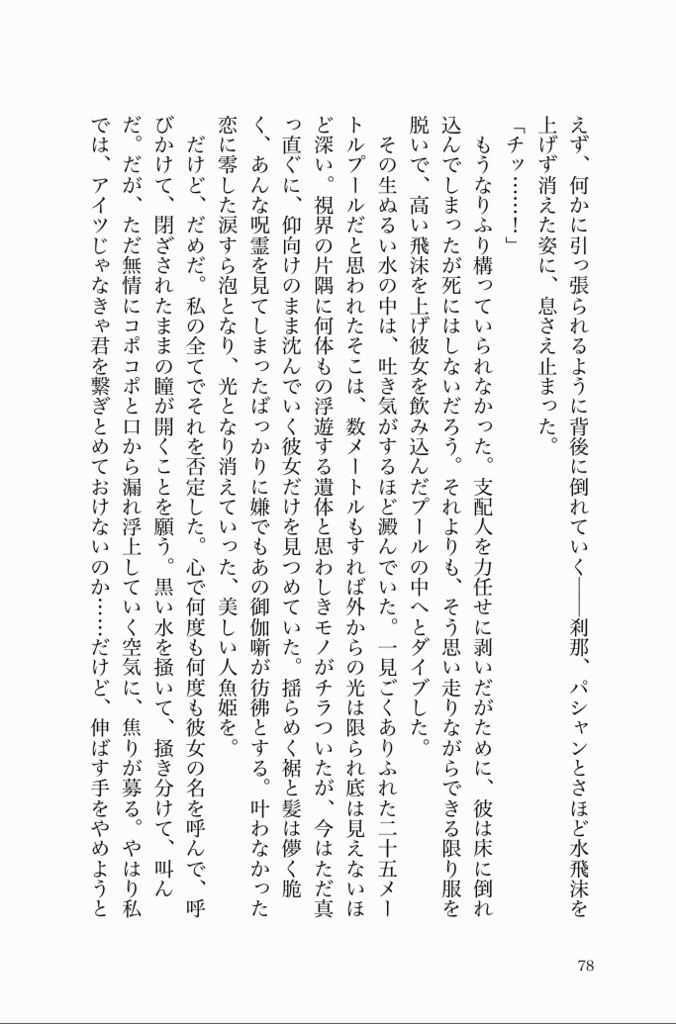 えず、何かに引っ張られるように背後に倒れていく――刹那、パシャンとさほど水飛沫を
上げず消えた姿に、息さえ止まった。
「チッ……！」
もうなりふり構っていられなかった。支配人を力任せに剥いだがために、彼は床に倒れ
込んでしまったが死にはしないだろう。それよりも、そう思い走りながらできる限り服を
脱いで、高い飛沫を上げ彼女を飲み込んだプールの中へとダイブした。
その生ぬるい水の中は、吐き気がするほど澱んでいた。一見ごくありふれた二十五メー
トルプールだと思われたそこは、数メートルもすれば外からの光は限られ底は見えないほ
ど深い。視界の片隅に何体もの浮遊する遺体と思わしきモノがチラついたが、今はただ真
っ直ぐに、仰向けのまま沈んでいく彼女だけを見つめていた。揺らめく裾と髪は儚く脆
く、あんな呪霊を見てしまったばっかりに嫌でもあの御伽噺が彷彿とする。叶わなかった
恋に零した涙すら泡となり、光となり消えていった、美しい人魚姫を。
だけど、だめだ。私の全てでそれを否定した。心で何度も何度も彼女の名を呼んで、呼
びかけて、閉ざされたままの瞳が開くことを願う。黒い水を掻いて、掻き分けて、叫ん
だ。だが、ただ無情にコポコポと口から漏れ浮上していく空気に、焦りが募る。やはり私
では、アイツじゃなきゃ君を繋ぎとめておけないのか……だけど、伸ばす手をやめようと
78